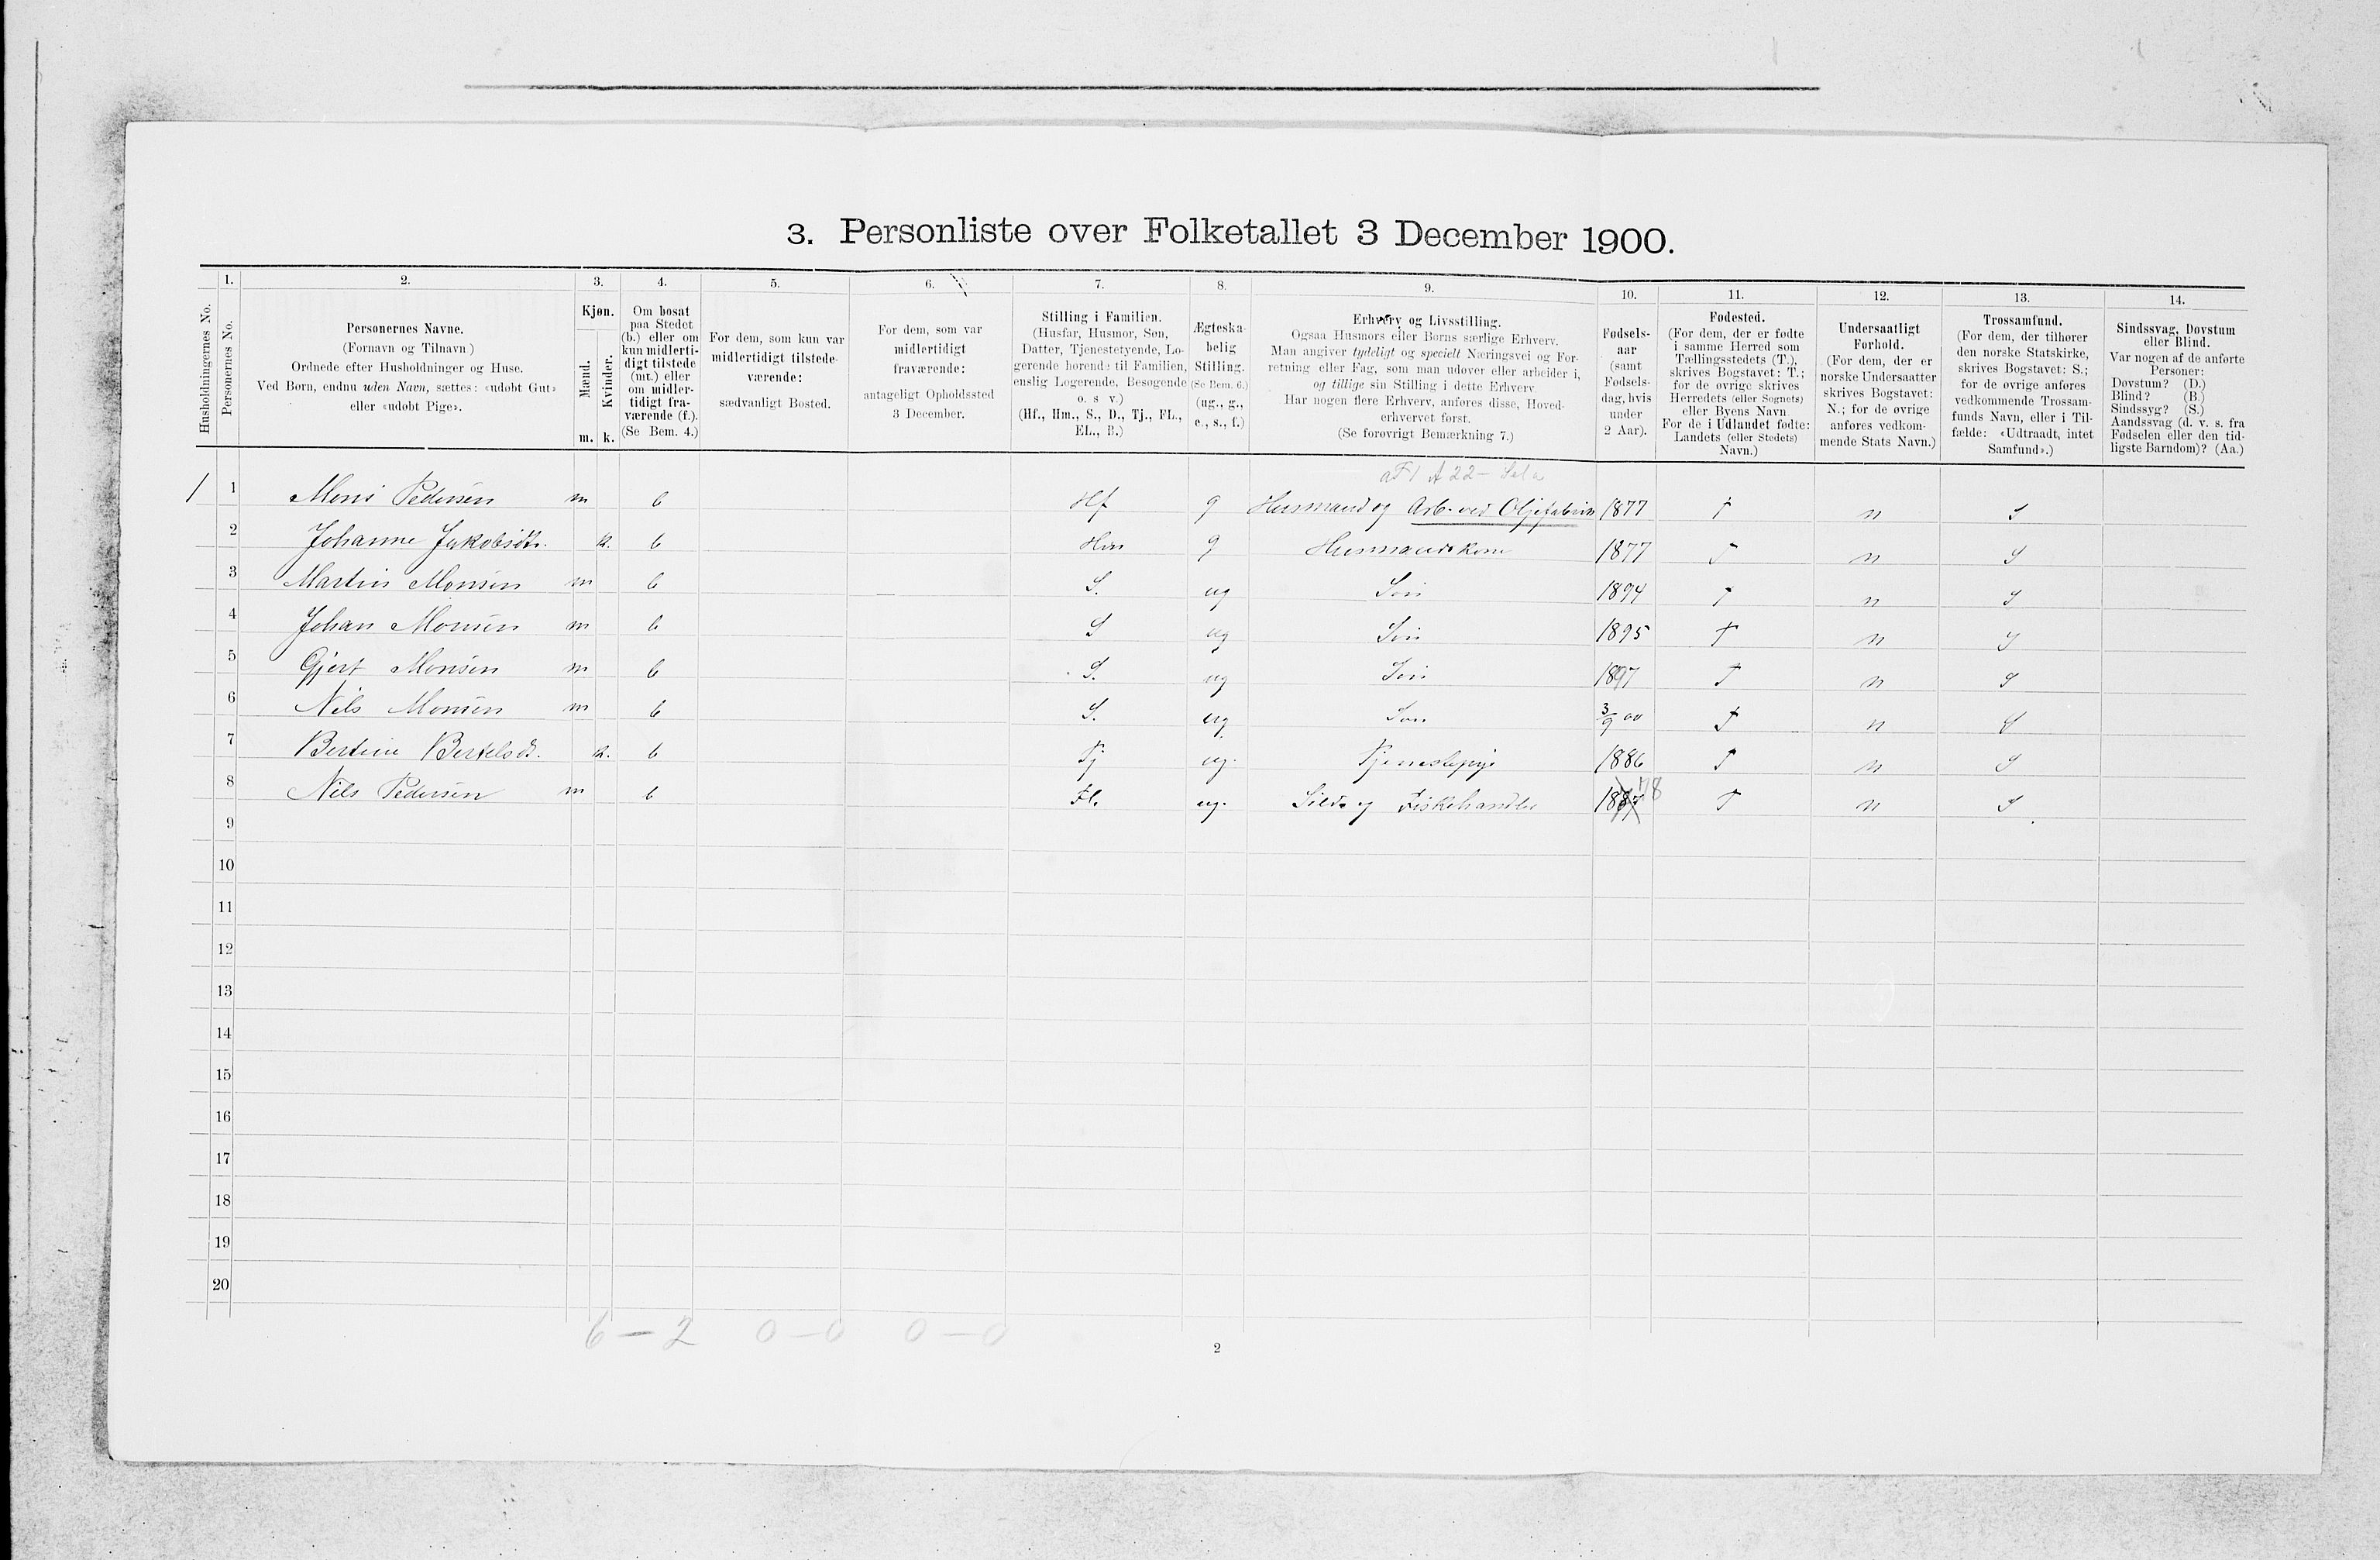 3. Personliste over Folketallet 3 December 1900.
1. 2. 3. 4. 5. 6. 7. 8. 9. 10. 11. 12. 13. 14.
Husholdningernes No.
Personernes No.
Personernes Navne.
(Fornavn og Tilnavn)
Ordnede efter Husholdninger og Huse.
Ved Børn, endnu uden Navn, sættes: «udøbt Gut»
eller «udøbt Pige».
Kjøn.
Mænd.
Kvinder.
m. k.
Om bosat
paa Stedet
(b.) eller om
kun midlerti-
digt tilstede
(mt.) eller
om midler-
tidigt fra-
værende (f.).
(Se Bem. 4.)
For dem, som kun var
midlertidigt tilstede-
værende:
sædvanligt Bosted.
For dem, som var
midlertidigt
fraværende:
antageligt Opholdssted
3 December.
Stilling i Familien.
(Husfar, Husmor, Søn,
Datter, Tjenestetyende, Lo-
gerende hørende til Familien,
enslig Logerende, Besøgende
o. s. v.)
(Hf., Hm., S., D., Tj., FL.,
EL., B.)
Ægteska-
belig
Stilling.
(Se Bem. 6.)
(ug., g.,
e., s., f.)
Erhverv og Livsstilling.
Ogsaa Husmors eller Børns særlige Erhverv.
Man angiver tydeligt og specielt Næringsvei og For-
retning eller Fag, som man udøver eller arbeider i,
og tillige sin Stilling i dette Erhverv.
Har nogen flere Erhverv, anføres disse, Hoved-
erhvervet først.
(Se forøvrigt Bemærkning 7.)
Fødsels-
aar
(samt
Fødsels-
dag, hvis
under
2 Aar).
Fødested.
(For dem, der er fødte
i samme Herred som
Tællingsstedets (T.),
skrives Bogstavet: T.;
for de øvrige skrives
Herredets (eller Sognets)
eller Byens Navn.
For de i Udlandet fødte:
Landets (eller Stedets)
Navn.)
Undersaatligt
Forhold.
(For dem, der er
norske Undersaatter
skrives Bogstavet:
N.; for de øvrige
anføres vedkom-
mende Stats Navn.)
Trossamfund.
(For dem, der tilhører
den norske Statskirke,
skrives Bogstavet: S.;
for de øvrige anføres
vedkommende Trossam-
funds Navn, eller i Til-
fælde: «Udtraadt, intet
Samfund».)
Sindssvag, Døvstum
eller Blind.
Var nogen af de anførte
Personer:
Døvstum? (D.)
Blind? (B.)
Sindssyg? (S.)
Aandssvag (d. v. s. fra
Fødselen eller den tid-
ligste Barndom)? (Aa.)
1 1 Mons Pedersen m b Hf g Husmand og Arb. ved Oljefabrik 1877 T n S
2 Johanne Jakobsdtr. k. b Hm g Husmandskone 1877 T n S
3 Martin Monsen m b S. ug Søn 1894 T n S
4 Johan Monsen m b S ug Søn 1895 T n S
5 Gjert Monsen m b S. ug Søn 1897 T n S
6 Nils Monsen m b S. ug Søn 3/9 00 T n S
7 Bertine Bertelsd. k. b Tj ug. Tjenestepige 1886 T n S
8 Nils Pedersen m b Fl. ug. Silde og Fiskehandler 1887 78 T n S
9
10
11
12
13
14
15
16
17
18
19
20
6 - 2 0 - 0 0 - 0
2